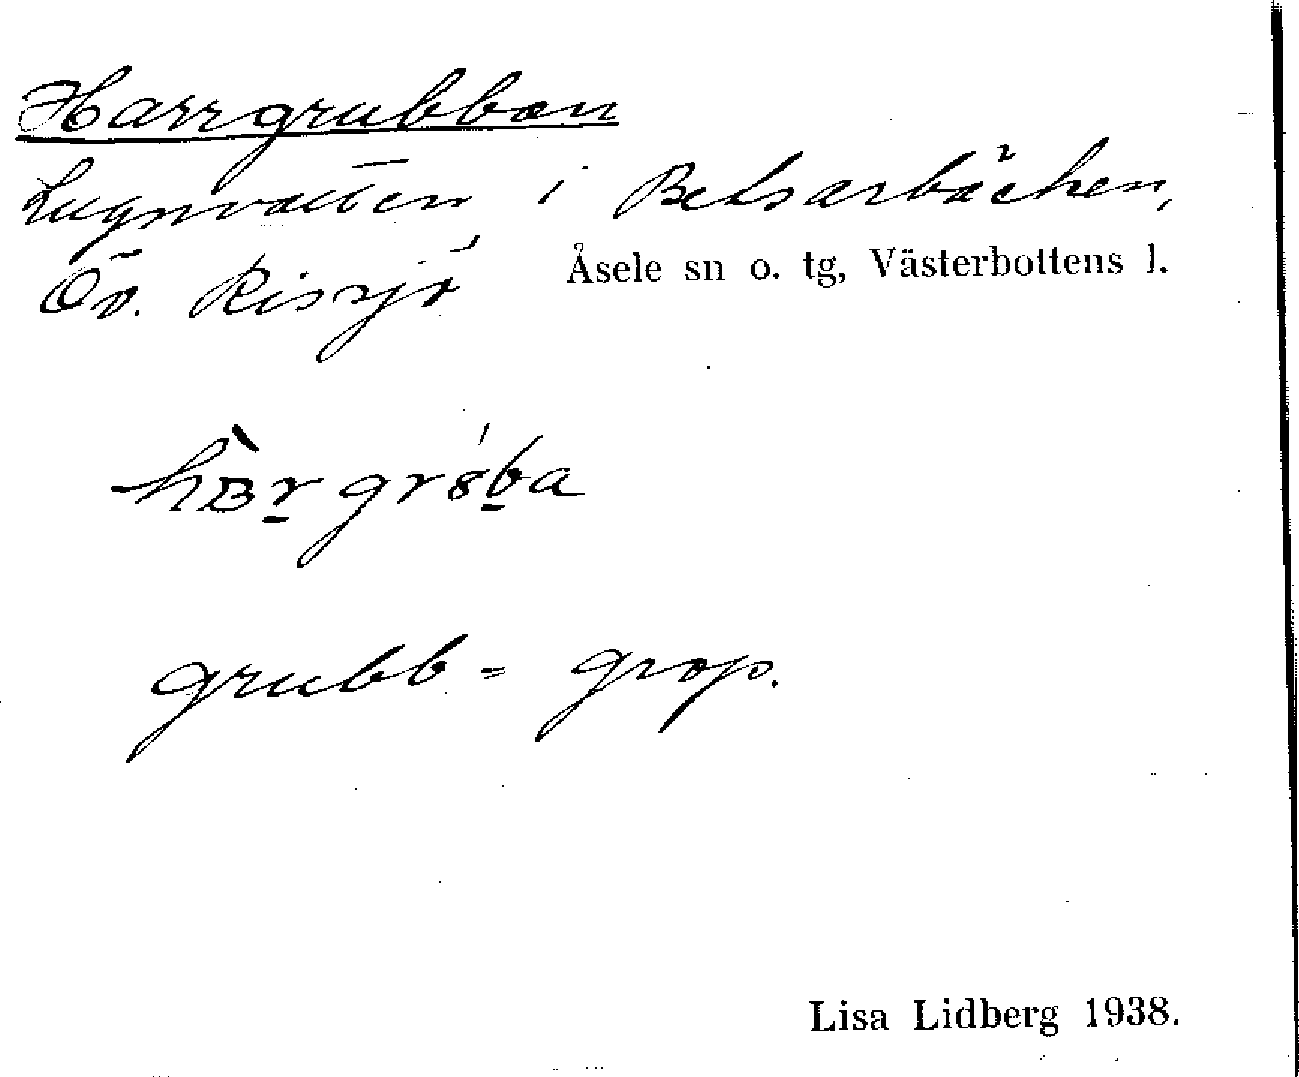 Harrgrubban
Lugnvatten i Betsarbäcken,
Öv. Rissjö Åsele sn o. tg, Västerbottens l.
grubb = grop.
Lisa Lidberg 1938.